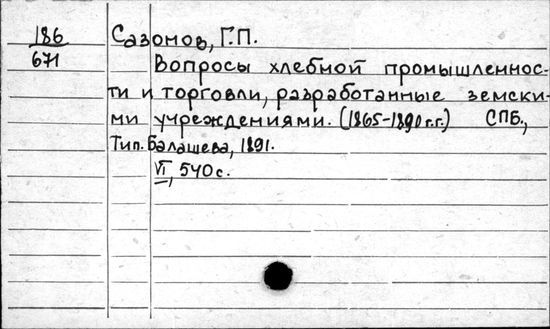 186
671
Сазонов, Г.П.
Вопросы хлебной промышленнос-
ти и торговли, разработанные земски-
ми учреждениями. (1865-1890 г.г.) СПБ.,
Тип. Балашева, 1891.
VI, 540 с.